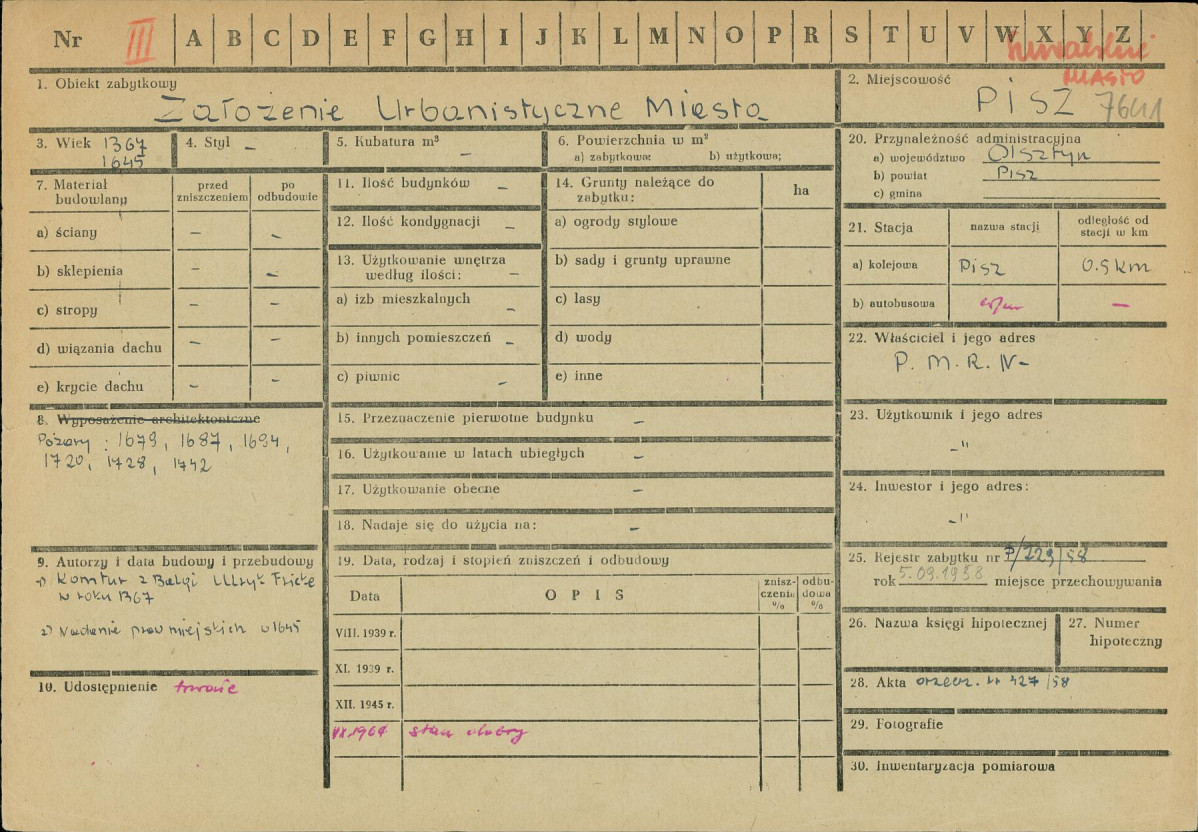 Nr III A B C D E F G H I J K L M N O P R S T U V W X Y Z
MIASTO
1. Obiekt zabytkowy
Założenie Urbanistyczne Miasta
2. Miejscowość
PISZ 7641
3. Wiek 1367
1645
4. Styl –
5. Kubatura m³
–
6. Powierzchnia w m²
a) zabytkowa: b) użytkowa;
20. Przynależność administracyjna
a) województwo Olsztyn
b) powiat Pisz
c) gmina
7. Materiał budowlany
przed zniszczeniem
po odbudowie
a) ściany – –
b) sklepienia – –
c) stropy – –
d) wiązania dachu – –
e) krycie dachu – –
11. Ilość budynków –
12. Ilość kondygnacji –
13. Użytkowanie wnętrza
według ilości: –
a) izb mieszkalnych –
b) innych pomieszczeń –
c) piwnic –
14. Grunty należące do
zabytku:
ha
a) ogrody stylowe
b) sady i grunty uprawne
c) lasy
d) wody
e) inne
21. Stacja
nazwa stacji
odległość od
stacji w km
a) kolejowa Pisz 0.5 km
b) autobusowa –
22. Właściciel i jego adres
P. M. R. N –
8. Wyposażenie architektoniczne
Pożary : 1679, 1687, 1694,
1720, 1728, 1742
15. Przeznaczenie pierwotne budynku –
16. Użytkowanie w latach ubiegłych –
17. Użytkowanie obecne –
18. Nadaje się do użycia na: –
23. Użytkownik i jego adres
–"
24. Inwestor i jego adres:
–"
9. Autorzy i data budowy i przebudowy
1) Komtur z Bałgi Ulryk Fricke
w roku 1367
2) Nadanie praw miejskich w 1645
10. Udostępnienie
19. Data, rodzaj i stopień zniszczeń i odbudowy
Data
OPIS
znisz-
czenia
%
odbu-
dowa
%
VIII. 1939 r.
XI. 1939 r.
XII. 1945 r.
stan dobry
25. Rejestr zabytku nr P/229/58
rok 5.09.1958 miejsce przechowywania
26. Nazwa księgi hipotecznej
27. Numer
hipoteczny
28. Akta orzecz. nr 427/58
29. Fotografie
30. Inwentaryzacja pomiarowa